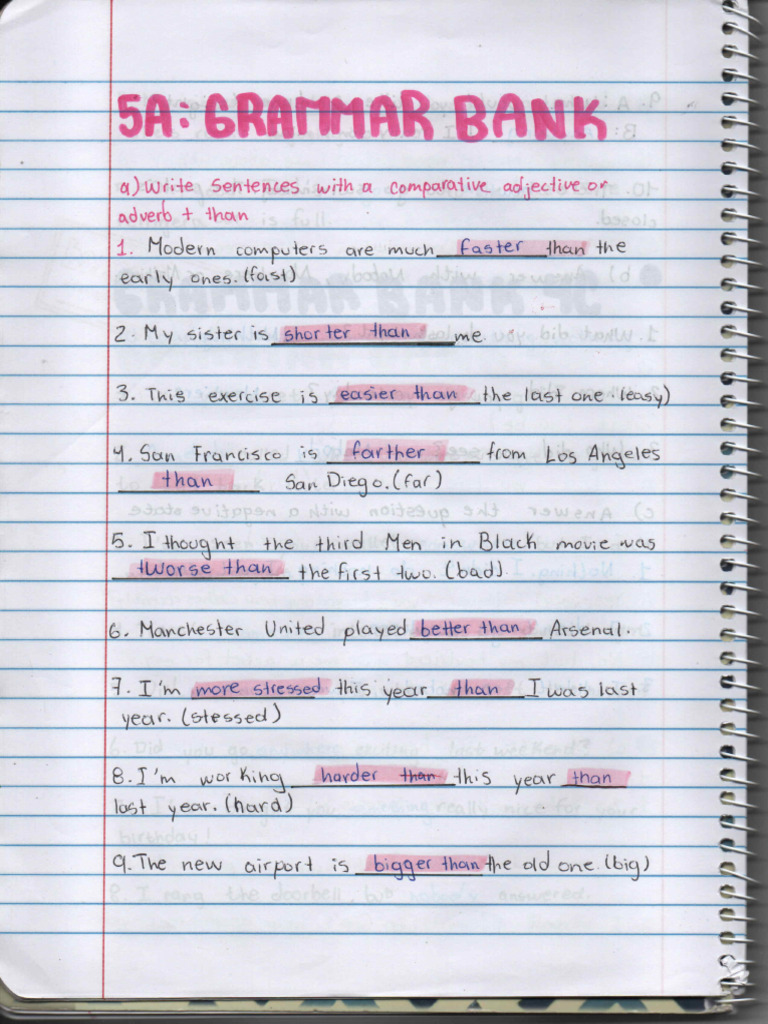 5A: GRAMMAR BANK
a) Write sentences with a comparative adjective or
adverb + than
1. Modern computers are much faster than the
early ones. (fast)
2. My sister is shorter than me.
3. This exercise is easier than the last one (easy)
4. San Francisco is farther from Los Angeles
than San Diego. (far)
5. I thought the third Men in Black movie was
worse than the first two. (bad).
6. Manchester United played better than Arsenal.
7. I'm more stressed this year than I was last
year. (stessed)
8. I'm working harder than this year than
last year. (hard)
9. The new airport is bigger than the old one. (big)